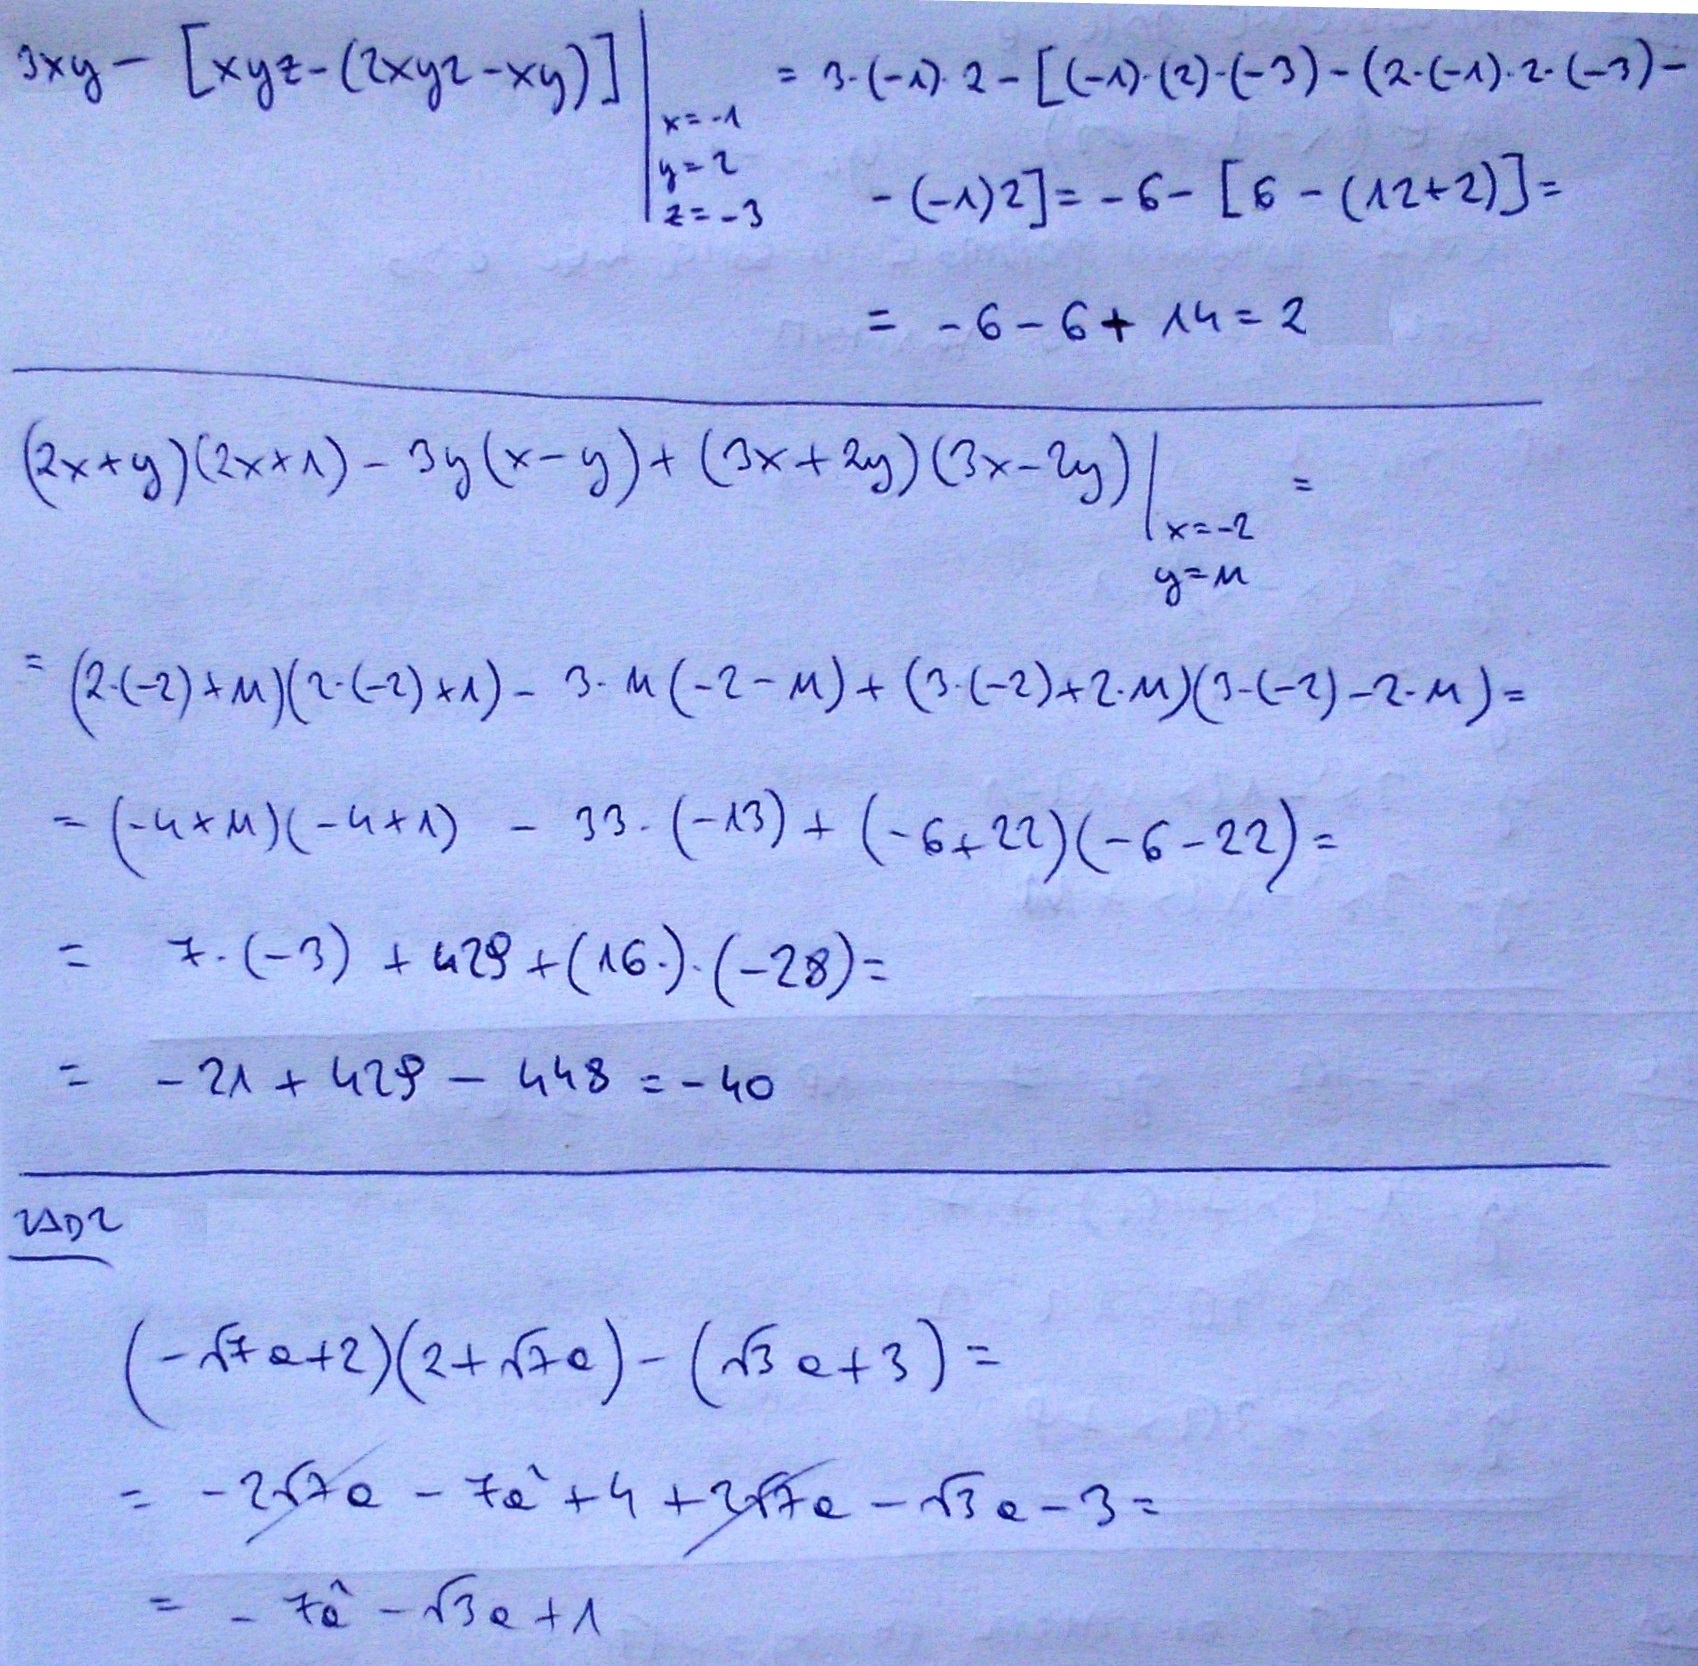 3xy - [xyz-(2xyz-xy)] | x=-1 y=2 z=-3 = 3·(-1)·2 - [(-1)·(2)·(-3) - (2·(-1)·2·(-3) -
- (-1)2] = -6 - [6 - (12+2)] =
= -6 - 6 + 14 = 2
(2x+y)(2x+1) - 3y(x-y) + (3x+2y)(3x-2y) | x=-2 y=11 =
= (2·(-2)+11)(2·(-2)+1) - 3·11(-2-11) + (3·(-2)+2·11)(3·(-2)-2·11) =
= (-4+11)(-4+1) - 33·(-13) + (-6+22)(-6-22) =
= 7·(-3) + 429 + (16·)·(-28) =
= -21 + 429 - 448 = -40
ZAD2
(-√7a+2)(2+√7a) - (√3a+3) =
= -2√7a - 7a² + 4 + 2√7a - √3a - 3 =
= -7a² - √3a + 1